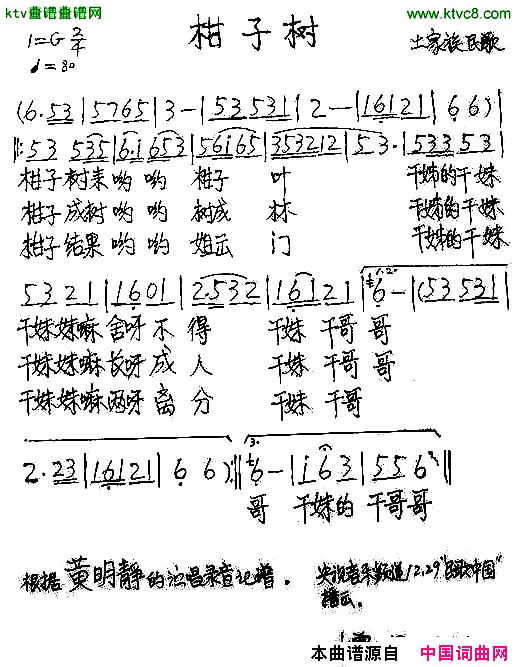 ktv畫谱畫谱网
www.ktvc8.com
柑子树
1=G 2/4
土家族民歌
♩=80
(6.53|5765|3-|53531|2-|16121|66)|
‖:53 535|6.1653|56165|3532121|53.|53353|
柑子树来哟哟 柑子 叶 干妹的干妹
柑子成树哟哟 树成 林 干妹的干妹
柑子结果哟哟 姐 门 干妹的干妹
5321|1601|2.532|16121|6-|(53531|
干妹妹嘛舍呀不得 干妹干哥哥
干妹妹嘛长呀成人 干妹干哥哥
干妹妹嘛两呀离分 干妹干哥
2.23|16121|66):‖6-|163|556‖
哥 干妹的干哥哥
根据黄明静的演唱录音记谱。
央视音乐频道12.29"民歌中国"
播出。
本曲谱源自 中国词曲网